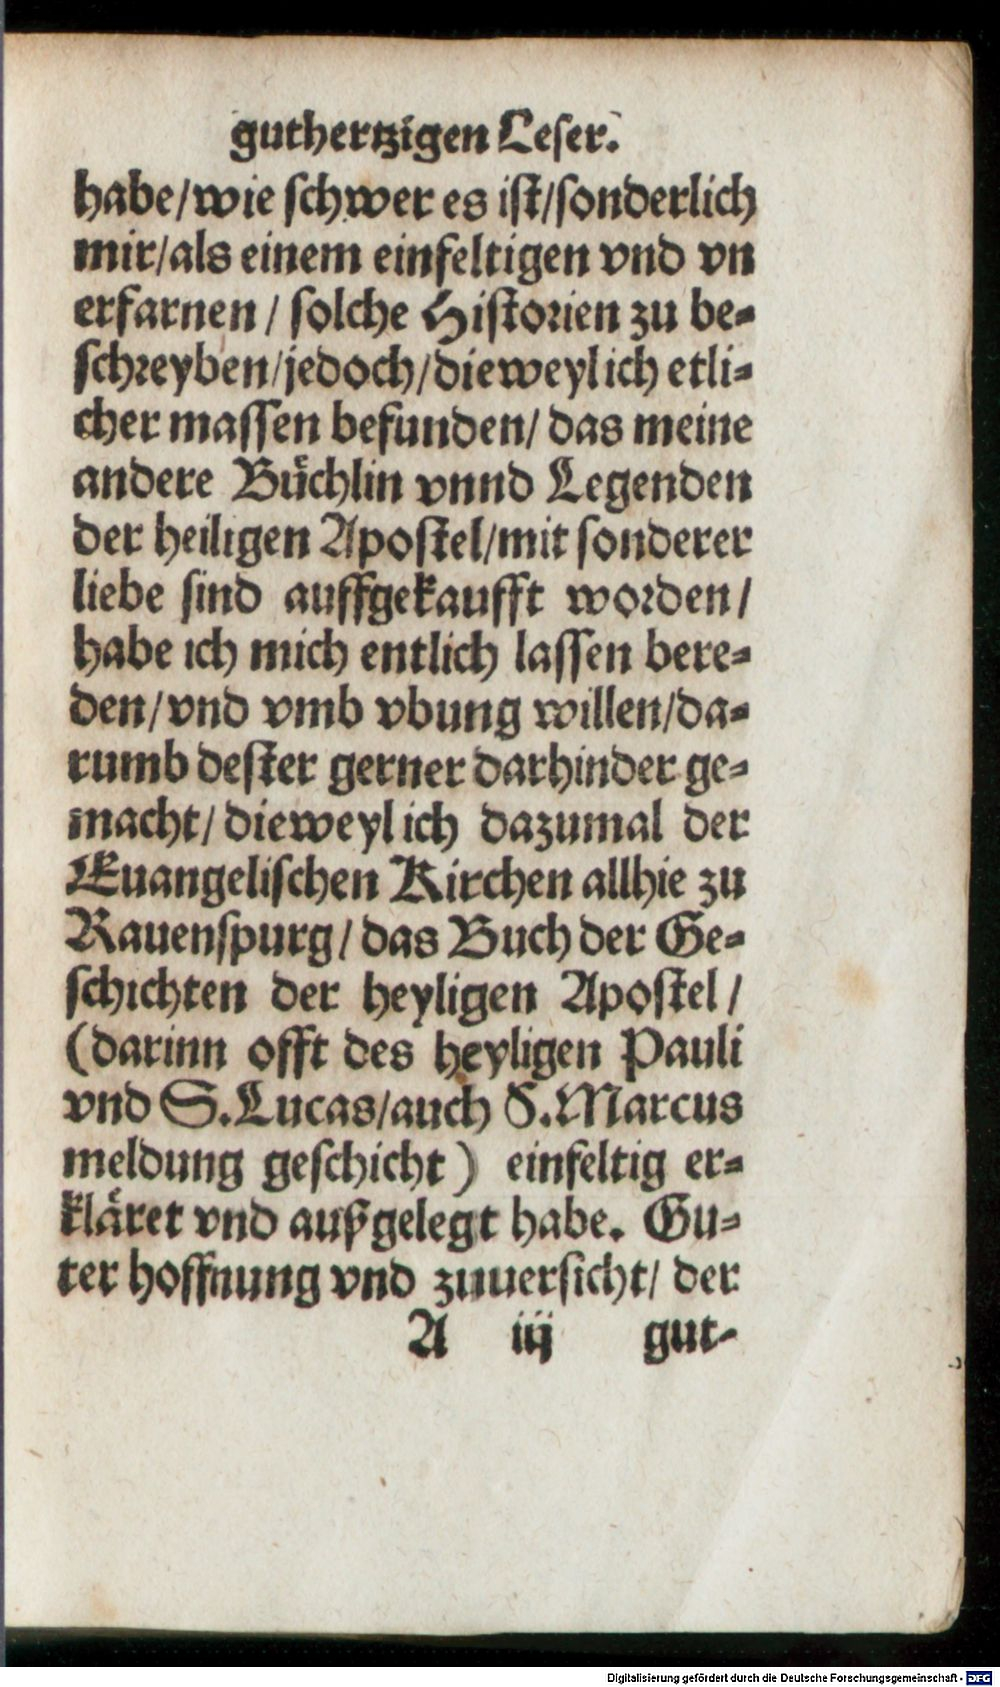 guthertzigen Leser.
habe/wie schwer es ist/sonderlich
mir/als einem einfeltigen vnd vn
erfarnen / solche Historien zu be-
schreyben/jedoch/dieweyl ich etli-
cher massen befunden/ das meine
andere Bůchlin vnnd Legenden
der heiligen Apostel/mit sonderer
liebe sind auffgekaufft worden/
habe ich mich entlich lassen bere-
den/vnd vmb vbung willen/da-
rumb dester gerner darhinder ge-
macht/ dieweyl ich dazumal der
Euangelischen Kirchen allhie zu
Rauenspurg/ das Buch der Ge-
schichten der heyligen Apostel/
(darinn offt des heyligen Pauli
vnd S. Lucas/auch S. Marcus
meldung geschicht) einfeltig er-
kläret vnd außgelegt habe. Gu-
ter hoffnung vnd zuuersicht/ der
A iij gut-
Digitalisierung gefördert durch die Deutsche Forschungsgemeinschaft - DFG